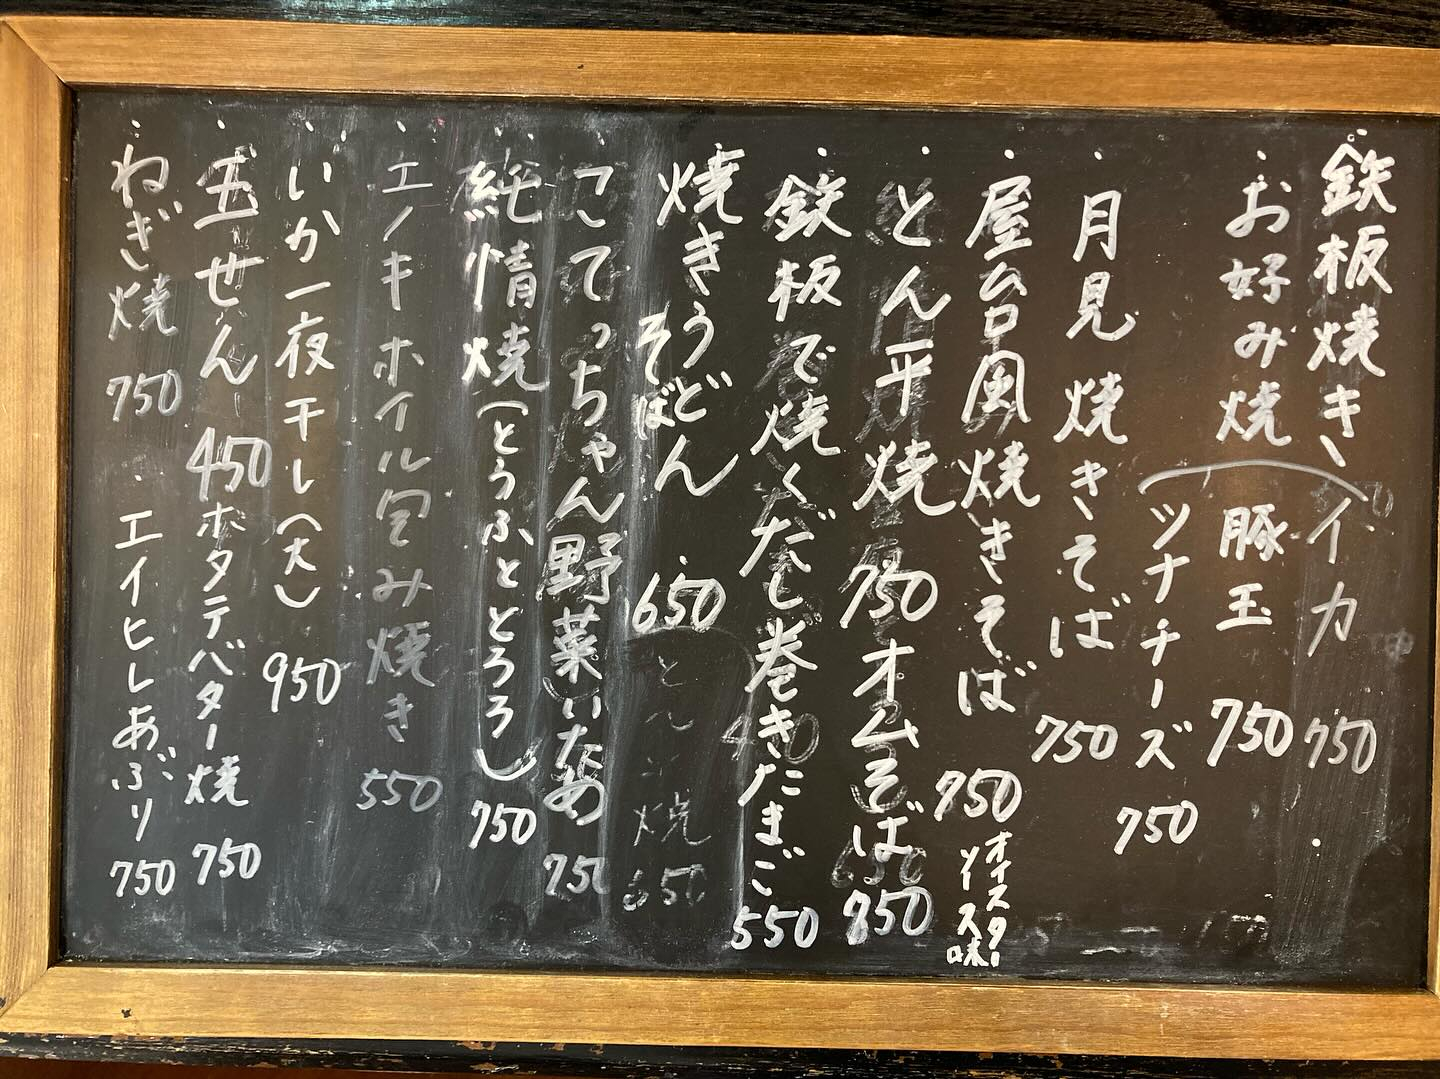 鉄板焼き、イカ 750
お好み焼 豚玉 750
ツナチーズ 750
月見焼きそば 750
屋台風焼きそば 750
オイスターソース味
とん平焼 750
オムそば 850
鉄板で焼くだし巻きたまご 550
焼きうどん 650
そば
とん平焼 650
こてっちゃん野菜いため 750
純情焼(とうふととろろ) 750
エノキホイル包み焼き 550
いか一夜干し(大) 950
玉せん 450
ホタテバター焼 750
ねぎ焼 750
エイヒレあぶり 750